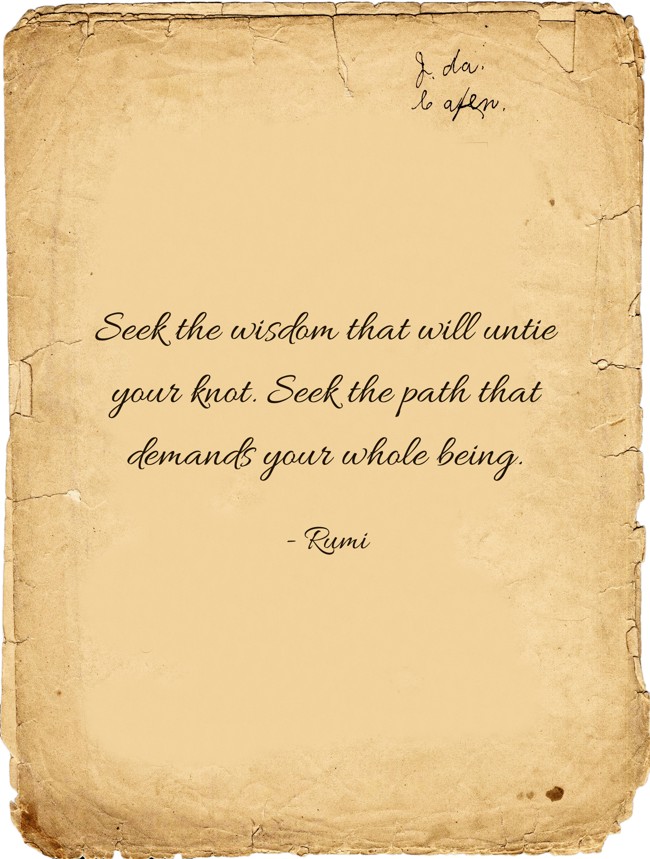 J. da.
Seek the wisdom that will untie
your knot. Seek the path that
demands your whole being.
- Rumi